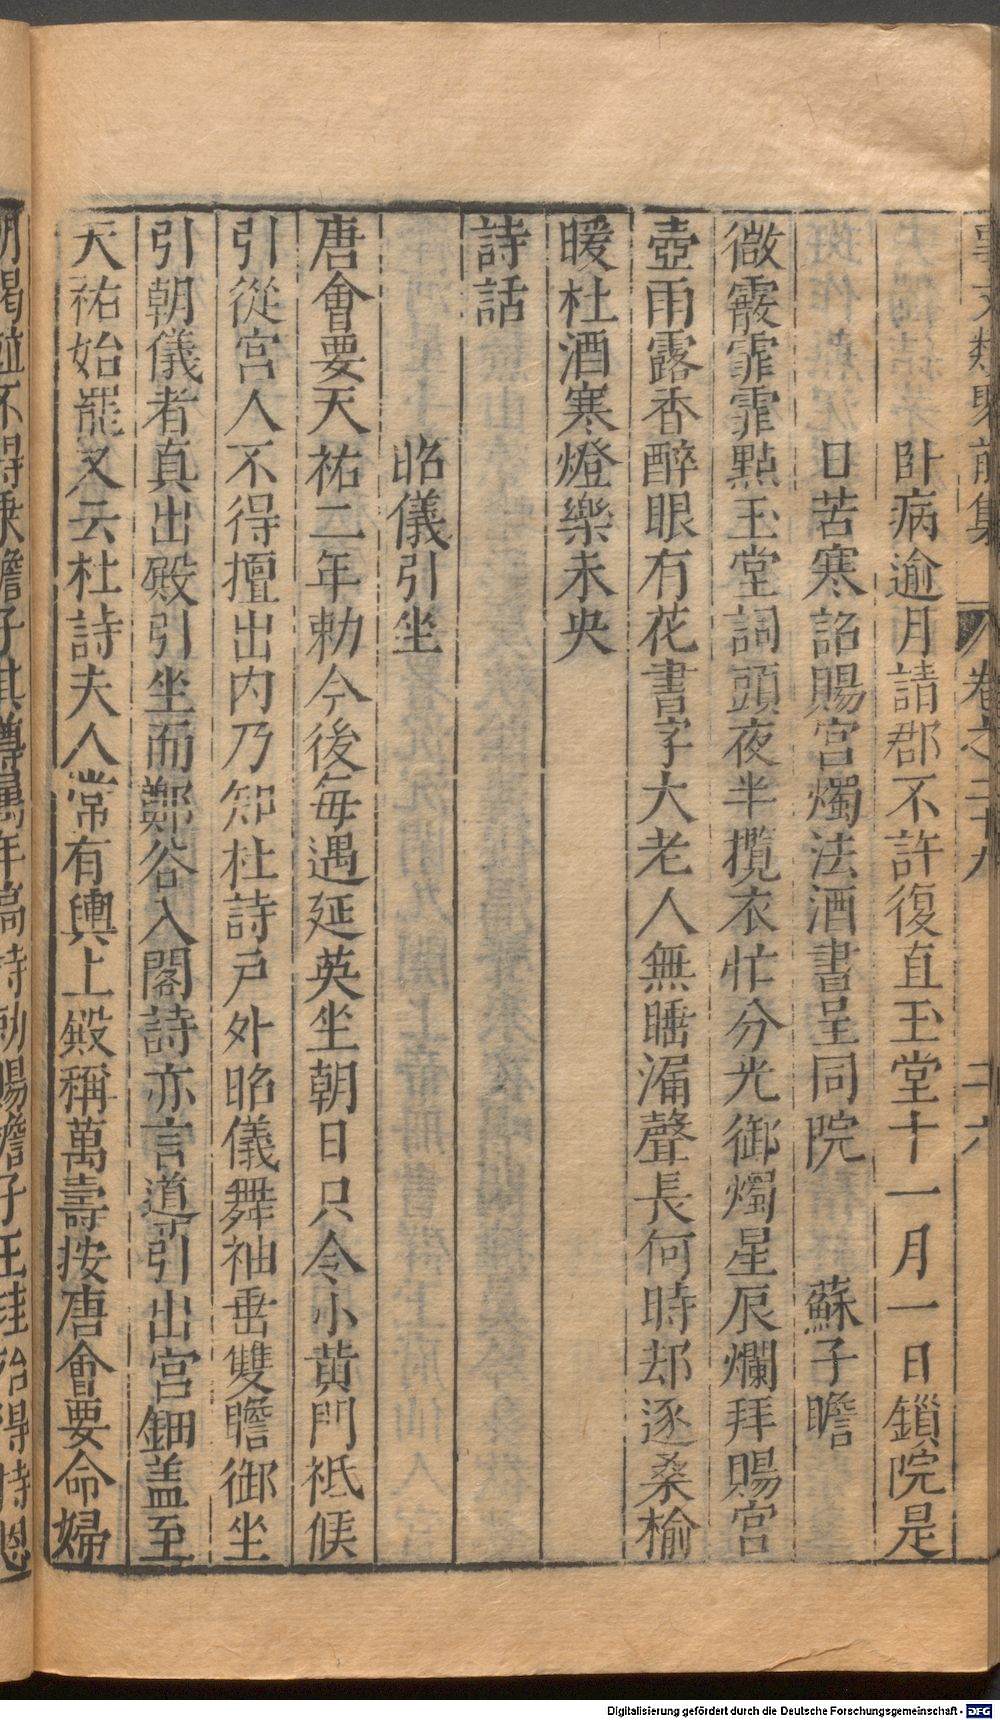 事文類聚前集 卷之三十九 二十六
卧病逾月請郡不許復直玉堂十一月一日鎖院是
日苦寒詔賜宫燭法酒書呈同院 蘇子瞻
微霰霏霏點玉堂詞頭夜半攬衣忙分光御燭星辰爛拜賜宫
壺雨露香醉眼有花書字大老人無睡漏聲長何時却逐桑榆
暖杜酒寒燈樂未央
詩話
昭儀引坐
唐會要天祐二年勅今後每遇延英坐朝日只令小黄門祗候
引從宫人不得擅出内乃知杜詩戸外昭儀舞袖垂雙瞻御坐
引朝儀者真出殿引坐而鄭谷入閣詩亦言導引出宫鈿盖至
天祐始罷又云杜詩夫人常有輿上殿稱萬壽按唐會要命婦
朝謁並不得乗簷子其尊屬年高特勑賜簷子王珪始得特恩
Digitalisierung gefördert durch die Deutsche Forschungsgemeinschaft - DFG